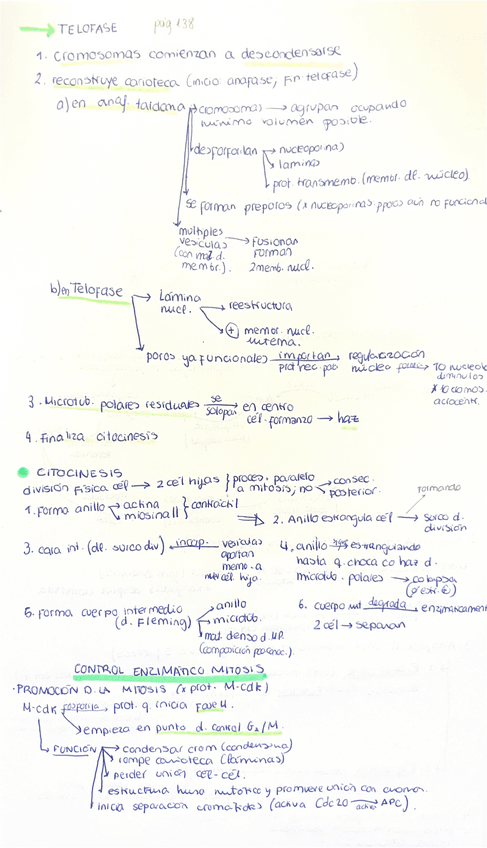 → TELOFASE pág 138
1. cromosomas comienzan a descondensarse
2. reconstruye carioteca (inicio anafase, fin telofase)
a) en anaf. tardana → cromosomas → agrupan ocupando
mínimo volumen posible.
desforforilan → nucleoporinas
laminas
prot. transmemb. (membr. de. núcleo)
se forman preporos (x nucleoporinas. pporos aún no funcional
multiples
vesículas → fusionan
(con mat. d. forman
membr.). 2 memb. nucl.
b) en Telofase → Lámina
nucl. → reestructura
⊕ membr. nucl.
interna.
poros ya funcionales importan → regularización
prot nec. núcleo → 10 nucleolos
diminutos
x 10 cromos.
acrocéntr.
3. Microtúb. polares residuales se solapan → en centro
cél. formanzo → haz
4. Finaliza citocinesis
CITOCINESIS
división física cél → 2 cél hijas } proces. paralelo → consec.
a mitosis; no → posterior.
1. forma anillo → actina
miosina II } contráctil
formando
⇒ 2. Anillo estrangula cél → surco d.
división
3. cara int. (de. surco div) ← incorp. vesículas
aportan
memb. a
cél. hija.
4. anillo sigue estrangulando
hasta q. choca co haz d.
microtub. polares → colapsa
5. forma cuerpo intermedio
(d. Fleming) → anillo
microtúb.
mat. denso d. MP.
(composición desconoc.).
6. cuerpo int degrada → enzimáticament
2 cél → separan
CONTROL ENZIMÁTICO MITOSIS
· PROMOCIÓN D. LA MITOSIS (x prot. M-cdk)
M-cdk fosforila → prot. q. inicia FASE M.
empieza en punto d. control G₂/M.
FUNCIÓN → condensar crom (condensina)
rompe carioteca (láminas)
perder unión cél-cél.
estructura huso mitótico y promueve unión con cromos.
inicia separación cromátides (activa Cdc20 activa → APC).